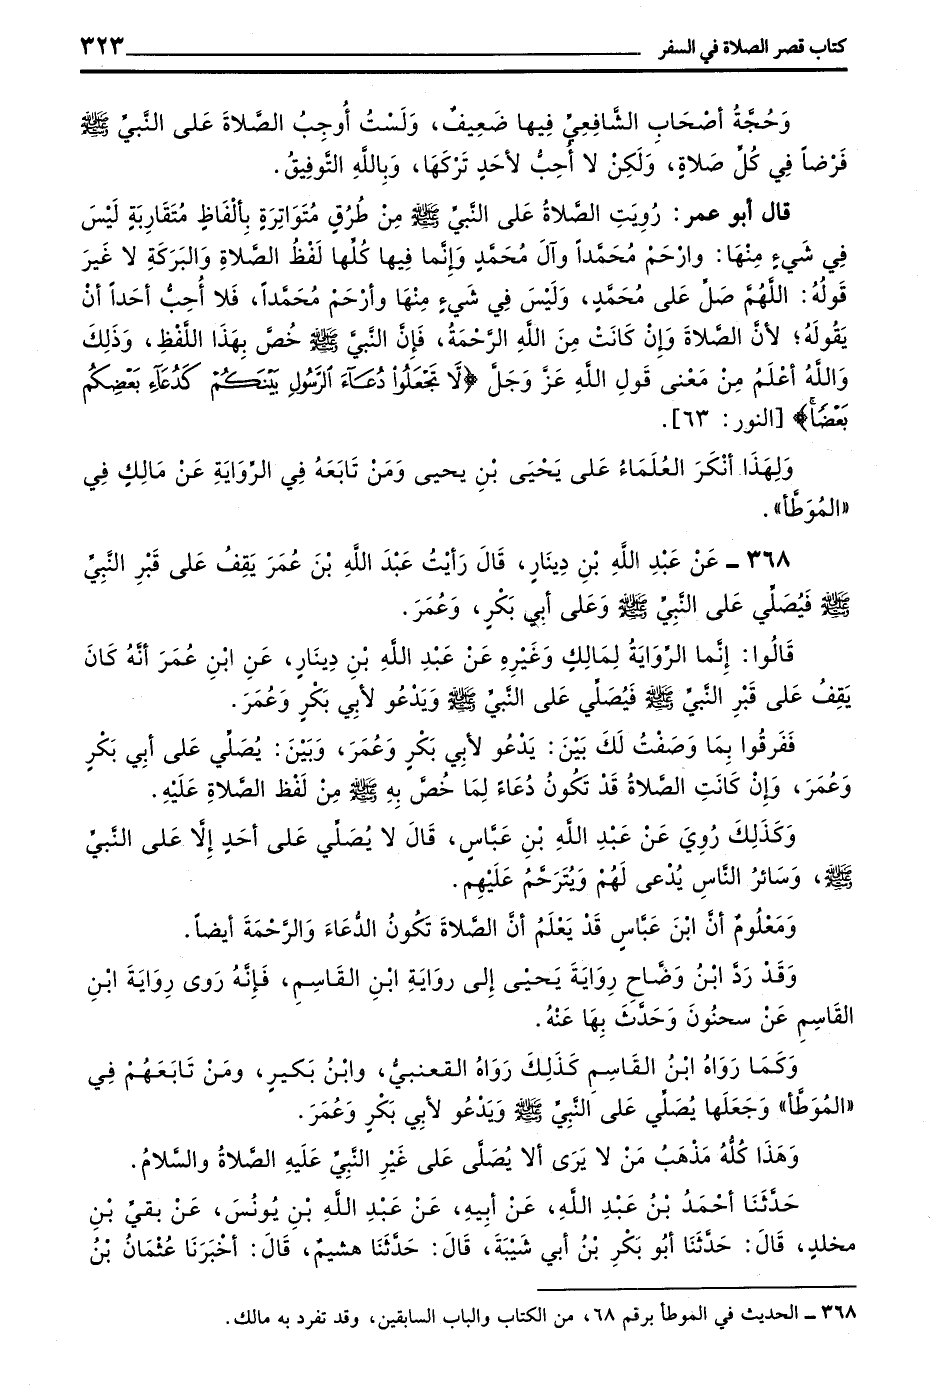 كتاب قصر الصلاة في السفر ٣٢٣
وَحُجَّةُ أصْحَابِ الشَّافِعِيِّ فِيها ضَعِيفٌ، وَلَسْتُ أُوجِبُ الصَّلاةَ عَلى النَّبيِّ ﷺ
فَرْضاً فِي كُلِّ صَلاةٍ، وَلَكِنْ لا أُحِبُّ لأحَدٍ تَرْكَهَا، وَبِاللَّهِ التَّوفِيقُ.
قال أبو عمر: رُوِيَتِ الصَّلاةُ عَلى النَّبيِّ ﷺ مِنْ طُرُقٍ مُتَوَاتِرَةٍ بِألْفَاظٍ مُتَقَارِبَةٍ لَيْسَ
فِي شَيءٍ مِنْهَا: وارْحَمْ مُحَمَّداً وآلَ مُحَمَّدٍ وَإنَّما فِيها كُلِّها لَفْظُ الصَّلاةِ وَالبَرَكَةِ لا غَيرَ
قَولُهُ: اللَّهُمَّ صَلِّ عَلى مُحَمَّدٍ، وَلَيْسَ فِي شَيءٍ مِنْهَا وأرْحَمْ مُحَمَّداً، فَلا أُحِبُّ أحَداً أنْ
يَقُولَهُ؛ لأنَّ الصَّلاةَ وَإنْ كَانَتْ مِنَ اللَّهِ الرَّحْمَةُ، فَإنَّ النَّبيَّ ﷺ خُصَّ بِهَذَا اللَّفْظِ، وَذَلِكَ
وَاللَّهُ أعْلَمُ مِنْ مَعْنى قَولِ اللَّهِ عَزَّ وَجَلَّ ﴿لَّا تَجْعَلُوا۟ دُعَآءَ ٱلرَّسُولِ بَيْنَكُمْ كَدُعَآءِ بَعْضِكُم
بَعْضًاۚ﴾ [النور: ٦٣].
وَلِهَذَا أنْكَرَ العُلَمَاءُ عَلى يَحْيَى بْنِ يحيى وَمَنْ تَابَعَهُ فِي الرِّوَايَةِ عَنْ مَالِكٍ فِي
«المُوَطَّأ».
٣٦٨ ـ عَنْ عَبْدِ اللَّهِ بْنِ دِينَارٍ، قَالَ رَأيْتُ عَبْدَ اللَّهِ بْنَ عُمَرَ يَقِفُ عَلى قَبْرِ النَّبيِّ
ﷺ فَيُصَلِّي عَلى النَّبيِّ ﷺ وَعَلى أبي بَكْرٍ، وَعُمَرَ.
قَالُوا: إنَّما الرِّوَايَةُ لِمَالِكٍ وَغَيْرِهِ عَنْ عَبْدِ اللَّهِ بْنِ دِينَارٍ، عَنِ ابْنِ عُمَرَ أنَّهُ كَانَ
يَقِفُ عَلى قَبْرِ النَّبيِّ ﷺ فَيُصَلِّي عَلى النَّبيِّ ﷺ وَيَدْعُو لأبي بَكْرٍ وَعُمَرَ.
فَفَرقُوا بِمَا وَصَفْتُ لَكَ بَيْنَ: يَدْعُو لأبي بَكْرٍ وَعُمَرَ، وَبَيْنَ: يُصَلِّي عَلى أبي بَكْرٍ
وَعُمَرَ، وَإنْ كَانَتِ الصَّلاةُ قَدْ تَكُونُ دُعَاءً لِمَا خُصَّ بِهِ ﷺ مِنْ لَفْظِ الصَّلاةِ عَلَيْهِ.
وَكَذَلِكَ رُوِيَ عَنْ عَبْدِ اللَّهِ بْنِ عَبَّاسٍ، قَالَ لا يُصَلِّي عَلى أحَدٍ إلَّا عَلى النَّبيِّ
ﷺ، وَسَائرُ النَّاسِ يُدْعى لَهُمْ وَيُتَرَحَّمُ عَلَيْهِم.
وَمَعْلُومٌ أنَّ ابْنَ عَبَّاسٍ قَدْ يَعْلَمُ أنَّ الصَّلاةَ تَكُونُ الدُّعَاءَ وَالرَّحْمَةَ أيضاً.
وَقَدْ رَدَّ ابْنُ وَضَّاحٍ رِوَايَةَ يَحيْى إلى روَايَةِ ابْنِ القَاسِمِ، فَإنَّهُ رَوى رِوَايَةَ ابْنِ
القَاسِمِ عَنْ سحنُونَ وَحَدَّثَ بِهَا عَنْهُ.
وَكَمَا رَوَاهُ ابْنُ القَاسِمِ كَذَلِكَ رَوَاهُ القعنبيُّ، وابْنُ بَكيرٍ، ومَنْ تَابَعَهُمْ فِي
«المُوَطَّأ» وَجَعَلَها يُصَلِّي عَلى النَّبيِّ ﷺ وَيَدْعُو لأبي بَكْرٍ وَعُمَرَ.
وَهَذَا كُلُّهُ مَذْهَبُ مَنْ لا يَرَى ألا يُصَلَّى عَلى غَيْرِ النَّبيِّ عَلَيهِ الصَّلاةُ والسَّلامُ.
حَدَّثَنَا أحْمَدُ بْنُ عَبْدِ اللَّهِ، عَنْ أبيهِ، عَنْ عَبْدِ اللَّهِ بْنِ يُونُسَ، عَنْ بقيِّ بْنِ
مخلدٍ، قَالَ: حَدَّثَنَا أبُو بَكْرِ بْنُ أبي شَيْبَةَ، قَالَ: حَدَّثَنَا هشيمٌ، قَالَ: أخْبَرَنَا عُثْمَانُ بْنُ
٣٦٨ ـ الحديث في الموطأ برقم ٦٨، من الكتاب والباب السابقين، وقد تفرد به مالك.